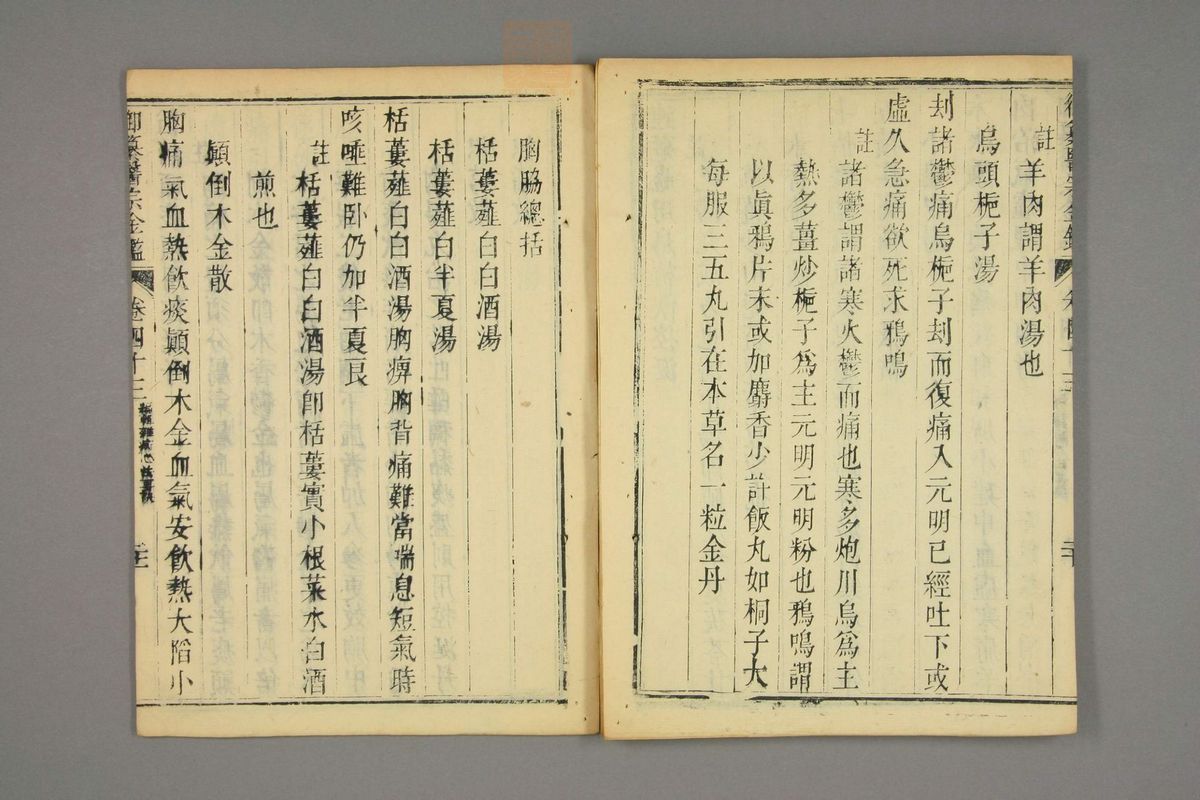 註羊肉謂羊肉湯也
烏頭梔子湯
刦諸鬱痛烏梔子刦而復痛入元明已經吐下或
虛久急痛欲死求鴉鳴
註諸鬱謂諸寒火鬱而痛也寒多炮川烏爲主
熱多薑炒梔子爲主元明元明粉也鴉鳴謂
以眞鴉片末或加麝香少計飯丸如桐子大
每服三五丸引在本草名一粒金丹
胸脇總括
栝蔞薤白白酒湯
栝蔞薤白半夏湯
栝蔞薤白白酒湯胸痹胸背痛難當喘息短氣時
咳唾難卧仍加半夏良
註栝蔞薤白白酒湯卽栝蔞實小根菜水白酒
煎也
顚倒木金散
胸痛氣血熱飲痰顚倒木金血氣安飲熱大陷小
御纂醫宗金鑑 卷四十三